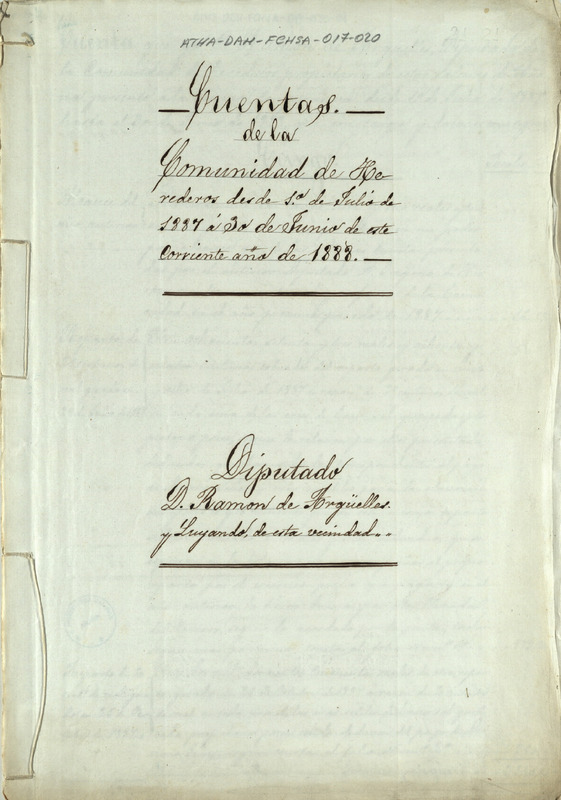 ATHA-DAH-FCHSA-017-020
Cuentas.
de la
Comunidad de He-
rederos desde 1.º de Julio de
1887 á 30 de Junio de este
corriente año de 1888.
Diputado
D. Ramon de Argüelles.
y Luyando, de esta vecindad..